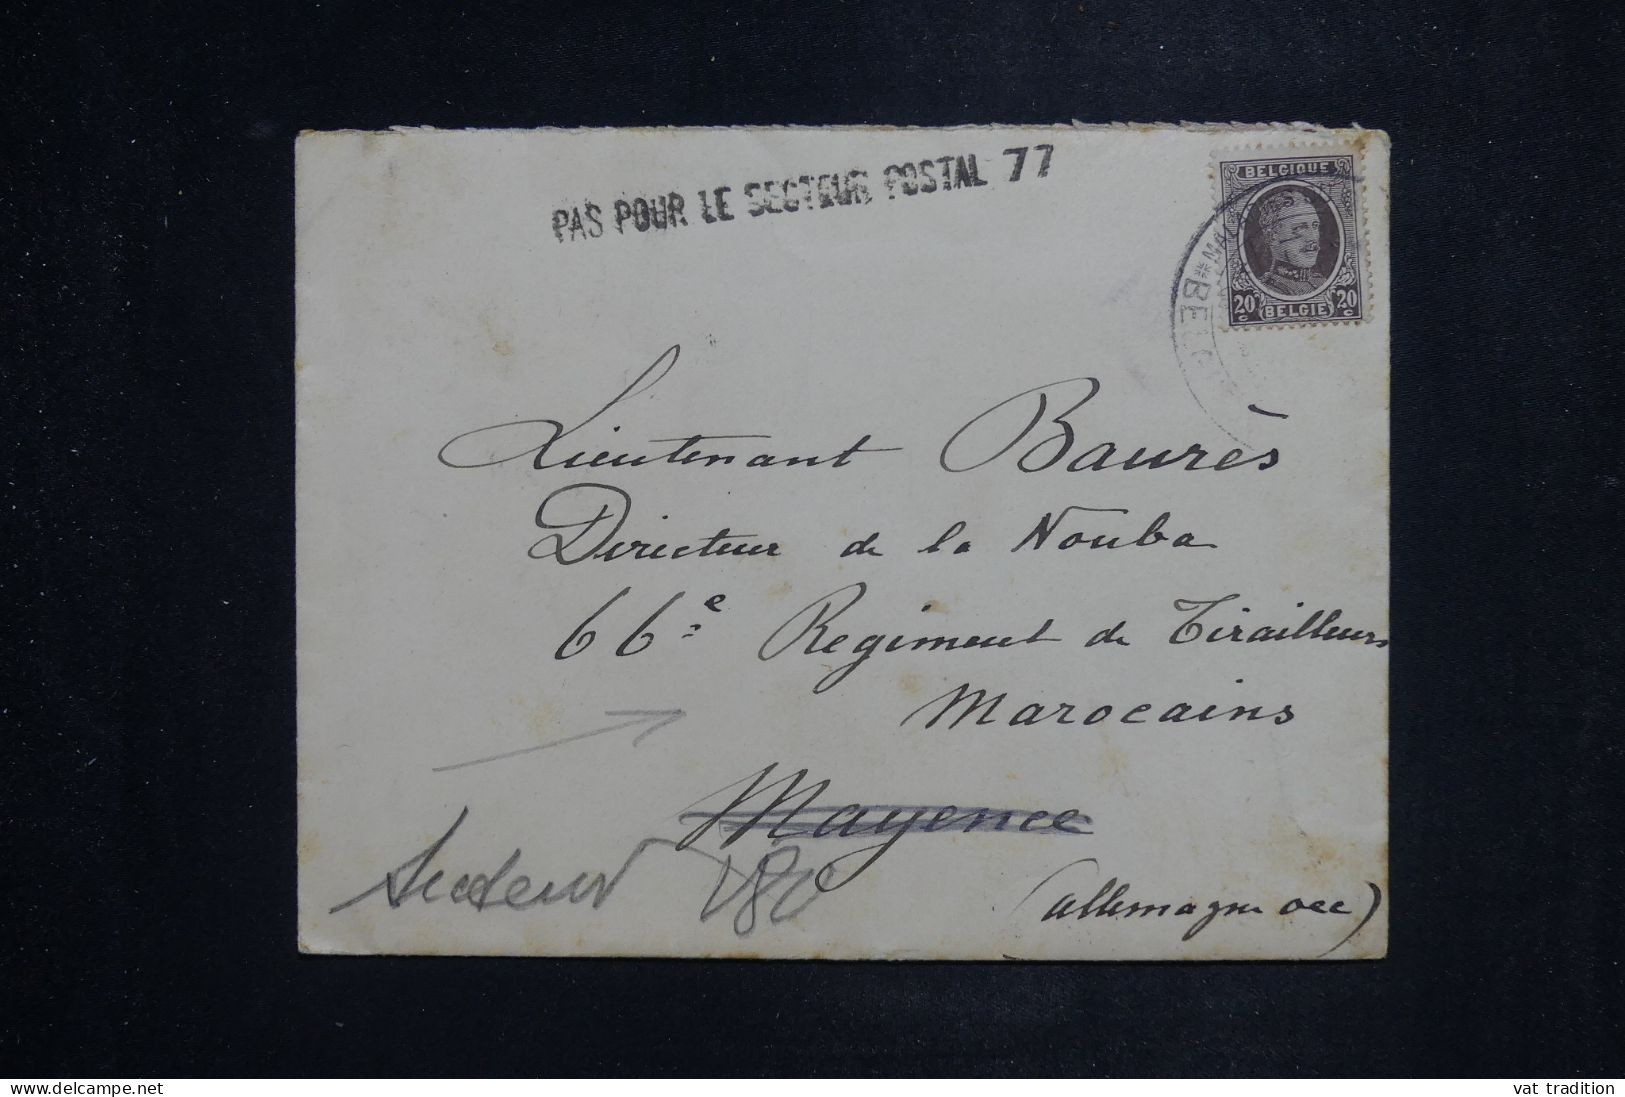 PAS POUR LE SECTEUR POSTAL 77
BELGIQUE
20 c BELGIE 20 c
Lieutenant Baurès
Directeur de la Nouba
66e Regiment de Tirailleurs
Marocains
Mayence
Secteur 180
(allemagne occ)
delcampe.net
vat tradition